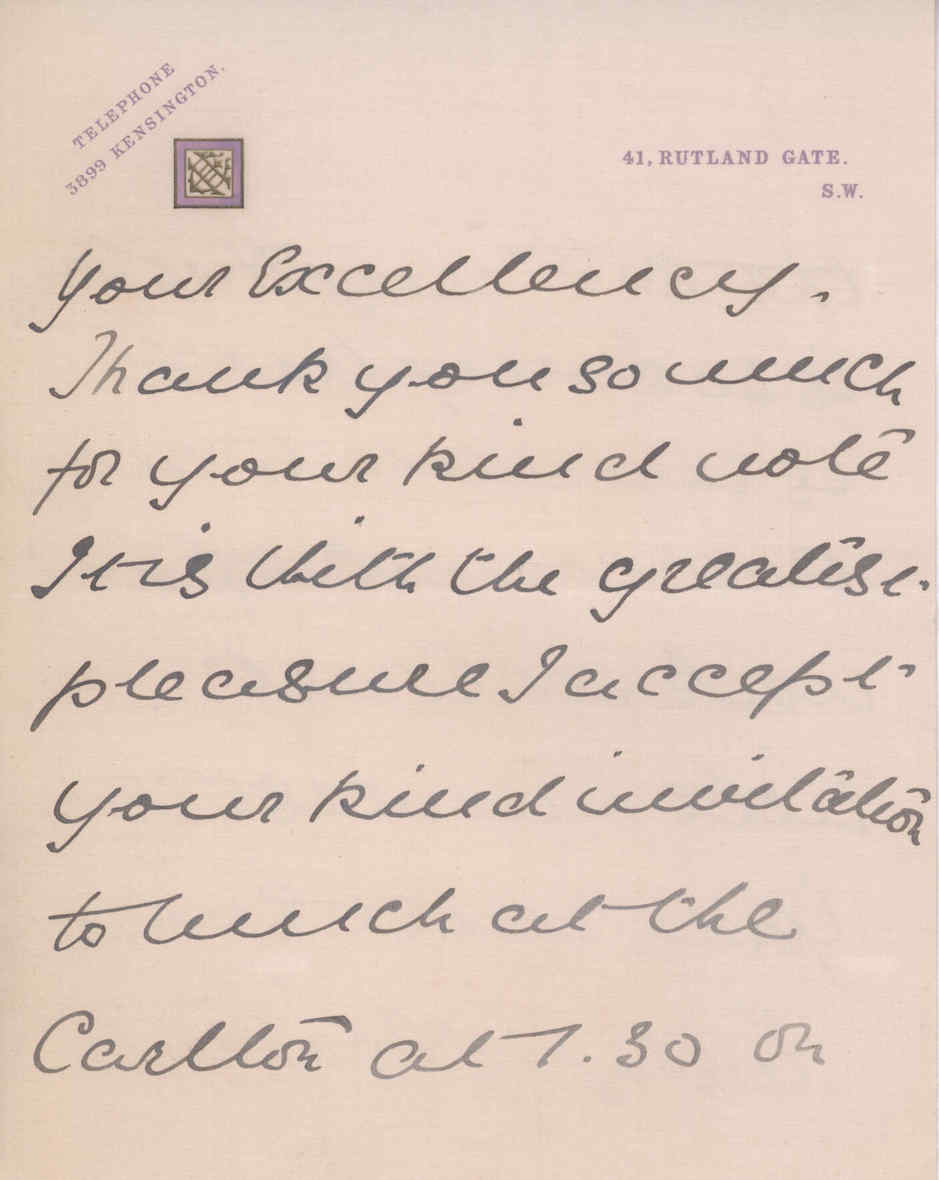 TELEPHONE
3899 KENSINGTON.
41, RUTLAND GATE.
S.W.
Your Excellency.
Thank you so much
for your kind note
It is with the greatest
pleasure I accept
your kind invitation
to lunch at the
Carlton at 1.30 on